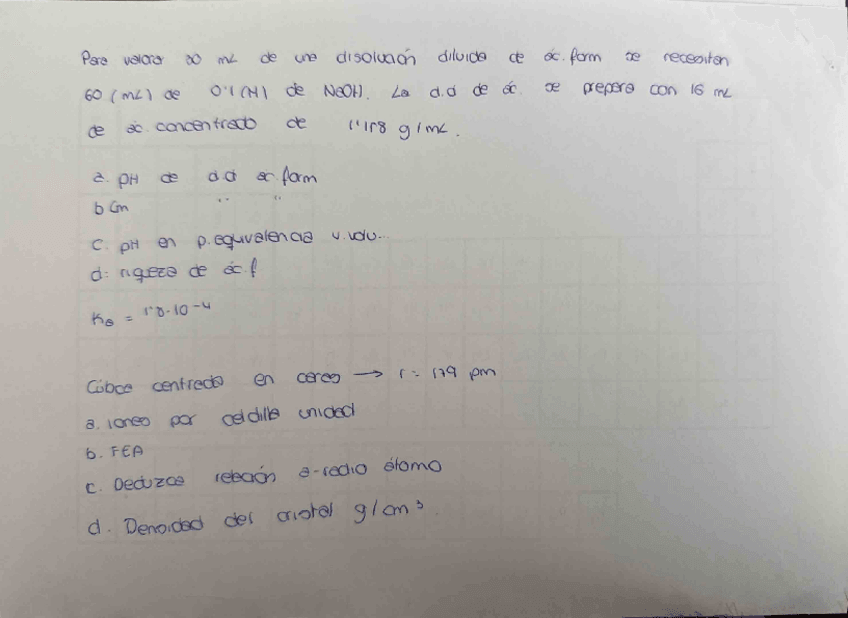 Para valorar 20 mL de una disolución diluida de ác. form se necesitan
60 (mL) de 0'1 (M) de NaOH. La d.d de ác. se prepara con 16 mL
de ác concentrado de 1'158 g/mL.
a. pH de d.d ác form
b Cm " "
c. pH en p.equivalencia v.volu...
d: riqueza de ác.f
Ka = 1'8·10-4
Cúbica centrada en caras → r = 179 pm
a. iones por celdilla unidad
b. FEA
c. Deduzca relación a-radio átomo
d. Densidad del cristal g/cm³.